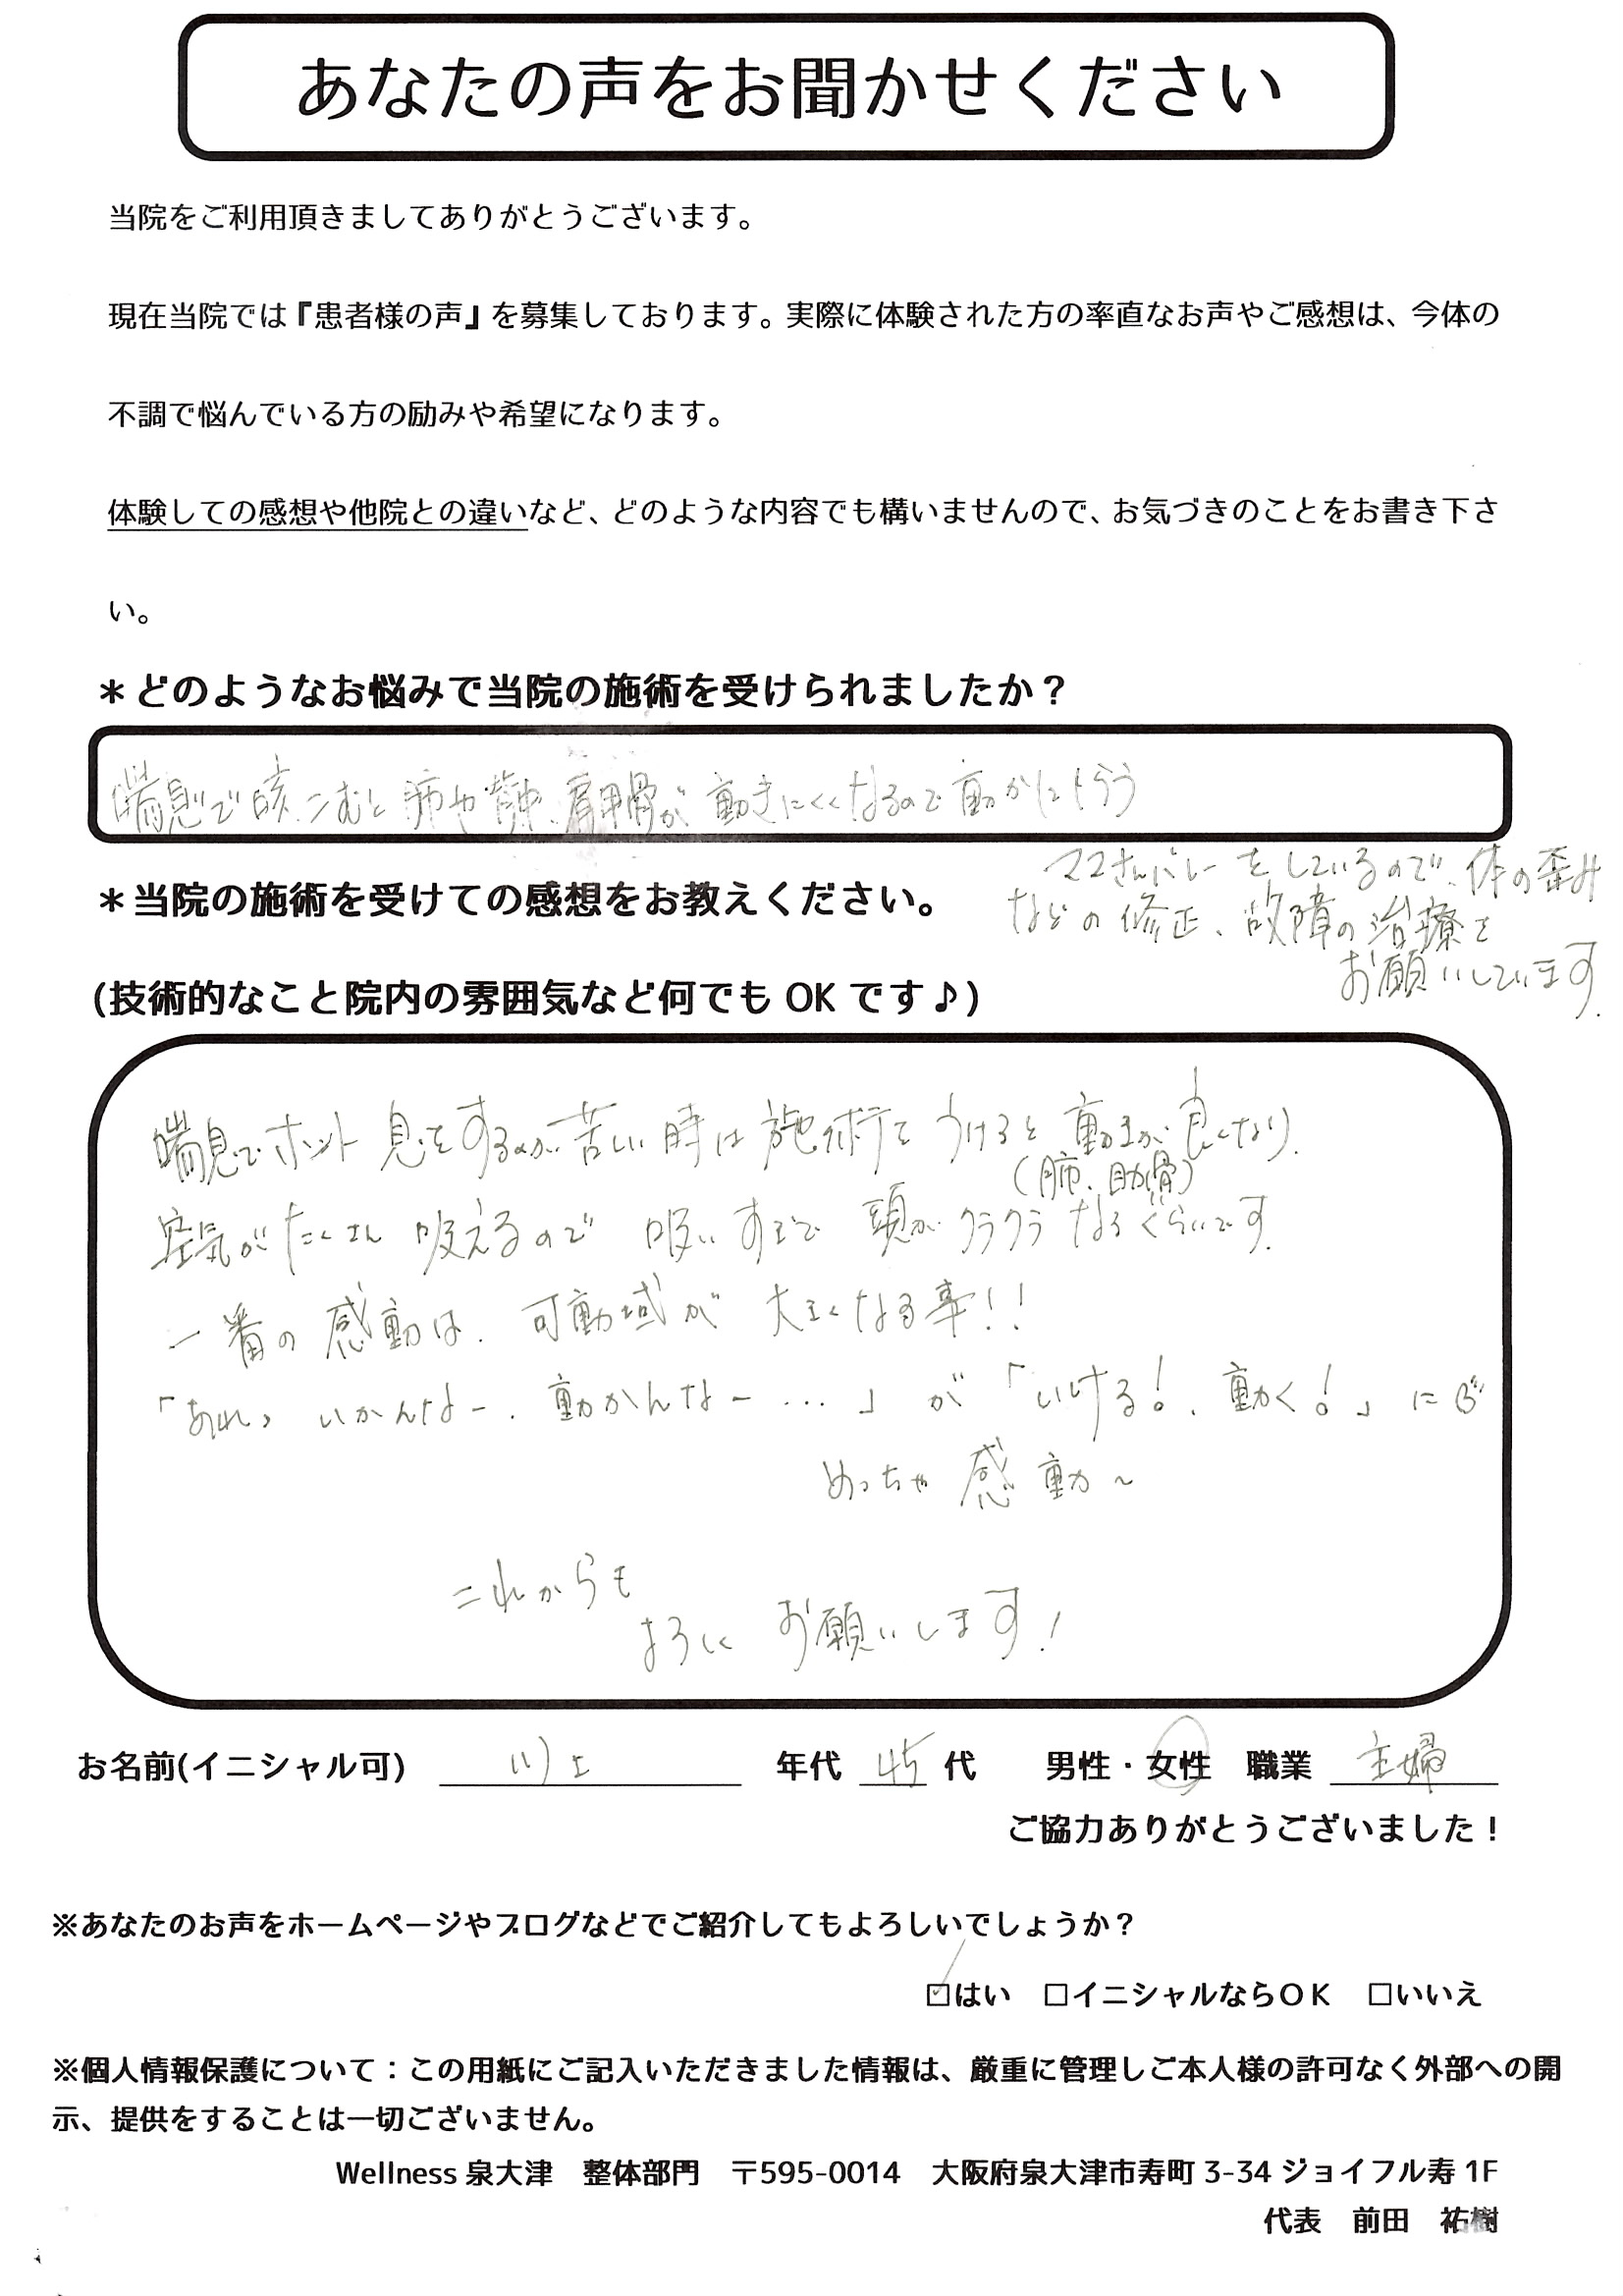 あなたの声をお聞かせください
当院をご利用頂きましてありがとうございます。
現在当院では『患者様の声』を募集しております。実際に体験された方の率直なお声やご感想は、今体の
不調で悩んでいる方の励みや希望になります。
体験しての感想や他院との違いなど、どのような内容でも構いませんので、お気づきのことをお書き下さ
い。
＊どのようなお悩みで当院の施術を受けられましたか？
喘息で咳こむと肺や背中、肩甲骨が動きにくくなるので動かしてもらう
ママさんバレーをしているので、体の歪み
などの修正、故障の治療を
お願いしています.
＊当院の施術を受けての感想をお教えください。
(技術的なこと院内の雰囲気など何でもOKです♪)
喘息でホント息をするのが苦しい時は施術をうけると動きが良くなり.
(肺、肋骨)
空気がたくさん吸えるので吸いすぎで頭がクラクラなるぐらいです.
一番の感動は.可動域が大きくなる事!!
「あれっいかんなー.動かんなー…」が「いける!.動く!」に
めっちゃ感動～
これからも
よろしくお願いします!
お名前(イニシャル可) 川上 年代 45 代 男性・女性 職業 主婦
ご協力ありがとうございました！
※あなたのお声をホームページやブログなどでご紹介してもよろしいでしょうか？
☑はい □イニシャルならＯＫ □いいえ
※個人情報保護について：この用紙にご記入いただきました情報は、厳重に管理しご本人様の許可なく外部への開
示、提供をすることは一切ございません。
Wellness 泉大津 整体部門 〒595-0014 大阪府泉大津市寿町 3-34 ジョイフル寿 1F
代表 前田 祐樹